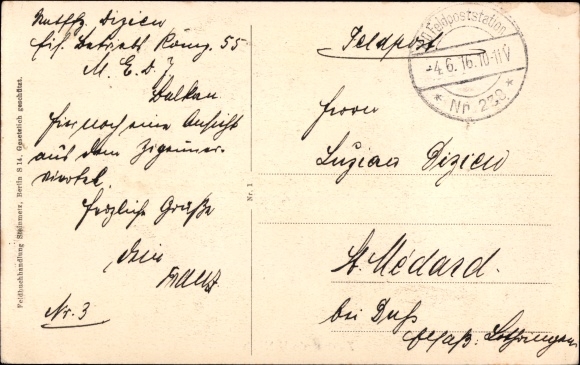 Dizien
Eis. Betriebs Komp. 55
M. E. D. 7
Balkan.
Hier noch eine Ansicht
aus dem Zigeuner-
viertel.
Herzliche Grüße
Dein
Franz
Nr. 3
Feldbuchhandlung Steinmetz, Berlin S 14. Gesetzlich geschützt.
Nr. 1
Feldpost.
Feldpoststation
-4.6.16.10-11V
* Nr *
Herrn
Luzian Dizien
St. Médard.
bei Duß
Elsaß: Lothringen